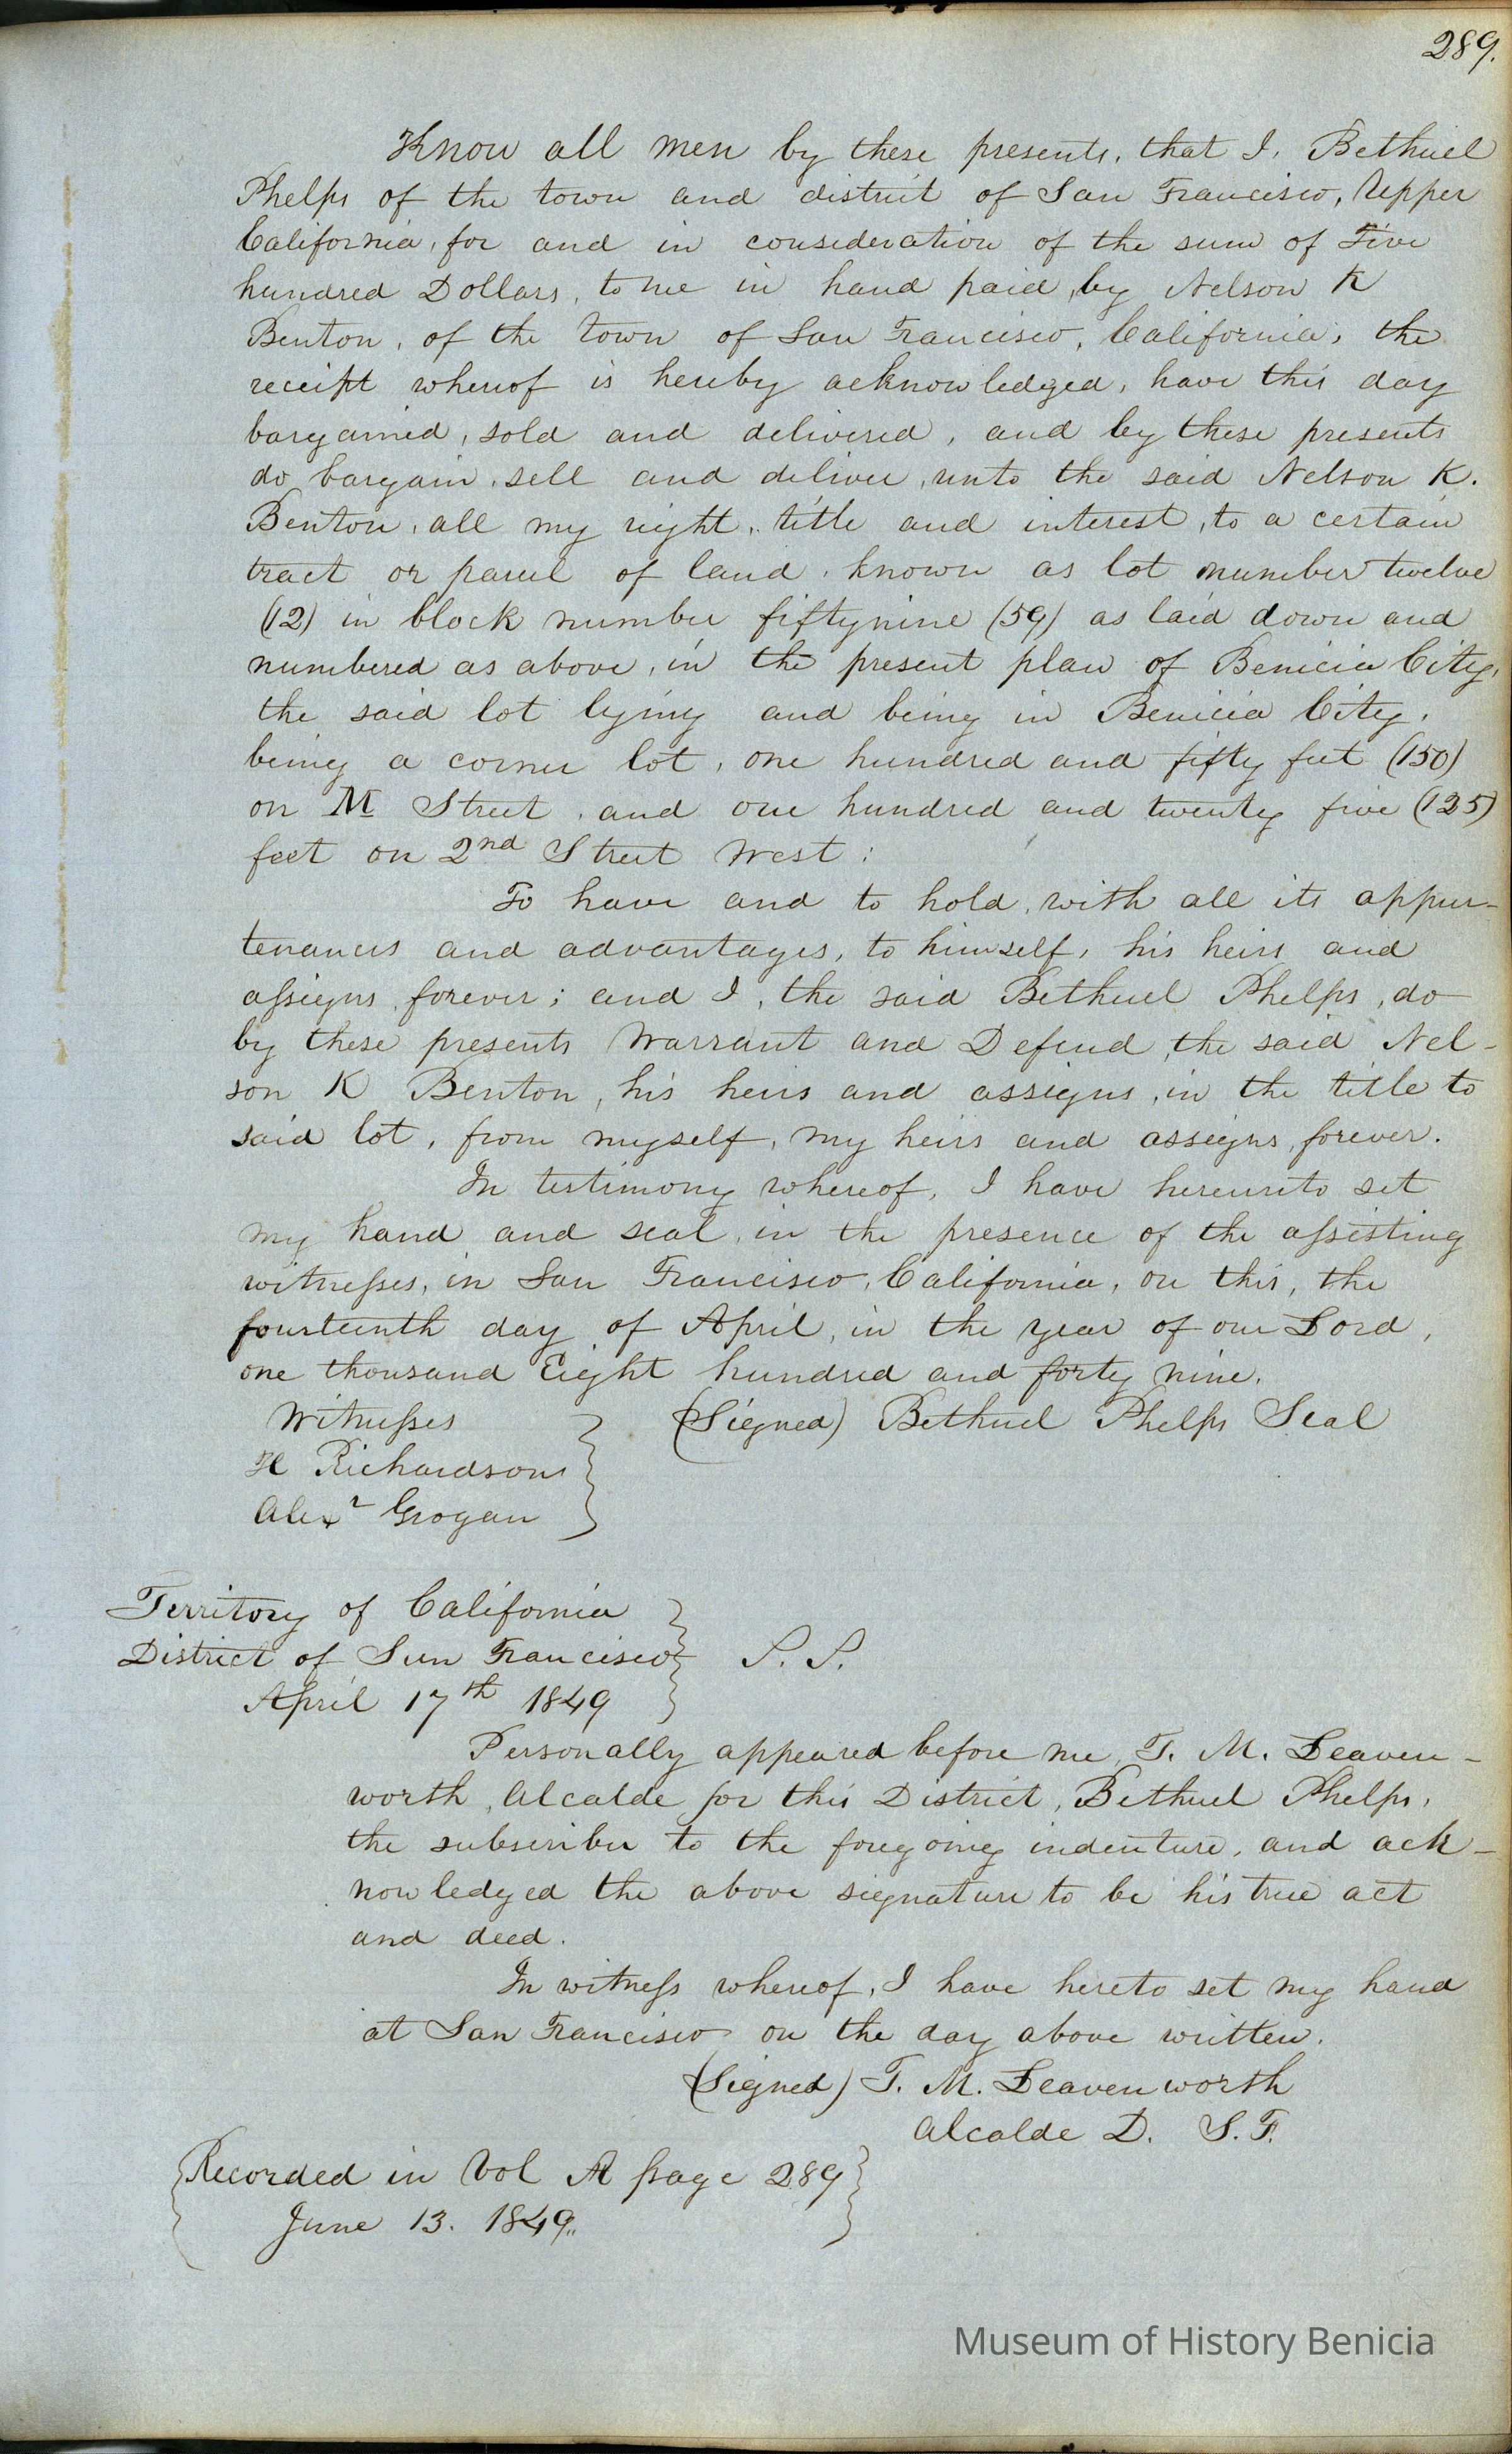 289.
Know all men by these presents, that I, Bethuel
Phelps of the town and district of San Francisco, Upper
California, for and in consideration of the sum of Five
hundred Dollars, to me in hand paid, by Nelson K
Benton, of the town of San Francisco, California, the
receipt whereof is hereby acknowledged, have this day
bargained, sold and delivered, and by these presents
do bargain, sell and deliver, unto the said Nelson K.
Benton, all my right, title and interest, to a certain
tract or parcel of land, known as lot number twelve
(12) in block number fiftynine (59) as laid down and
numbered as above, in the present plan of Benicia City,
the said lot lying and being in Benicia City,
being a corner lot, one hundred and fifty feet (150)
on M Street, and one hundred and twenty five (125)
feet on 2nd Street West;
To have and to hold, with all its appur-
tenances and advantages, to himself, his heirs and
assigns, forever; and I, the said Bethuel Phelps, do
by these presents Warrant and Defend, the said Nel-
son K Benton, his heirs and assigns, in the title to
said lot, from myself, my heirs and assigns, forever.
In testimony whereof, I have hereunto set
my hand and seal, in the presence of the assisting
witnesses, in San Francisco, California, on this, the
fourteenth day of April, in the year of our Lord,
one thousand Eight hundred and forty nine.
Witnesses (Signed) Bethuel Phelps Seal
H Richardson
Alexr Grogan
Territory of California
District of San Francisco S. S.
April 17th 1849
Personally appeared before me, T. M. Leaven-
worth, Alcalde for this District, Bethuel Phelps,
the subscriber to the foregoing indenture, and ack-
nowledged the above signature to be his true act
and deed.
In witness whereof, I have hereto set my hand
at San Francisco on the day above written.
(Signed) T. M. Leavenworth
Alcalde D. S. F.
Recorded in Vol A page 289
June 13. 1849.
Museum of History Benicia